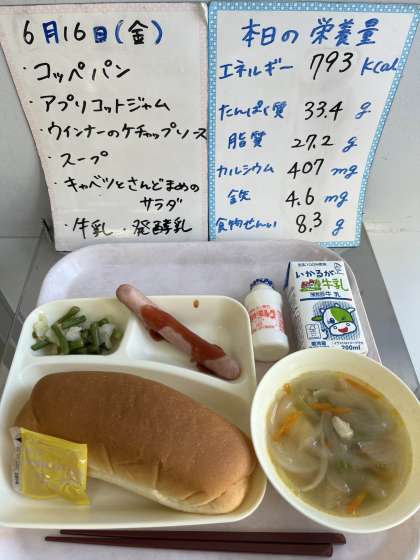 6月16日(金)
・コッペパン
・アプリコットジャム
・ウインナーのケチャップソース
・スープ
・キャベツとさんどまめの
サラダ
・牛乳・発酵乳
本日の栄養量
エネルギー 793 Kcal
たんぱく質 33.4 g
脂質 27.2 g
カルシウム 407 mg
鉄 4.6 mg
食物せんい 8.3 g
いかるが
牛乳
200ml